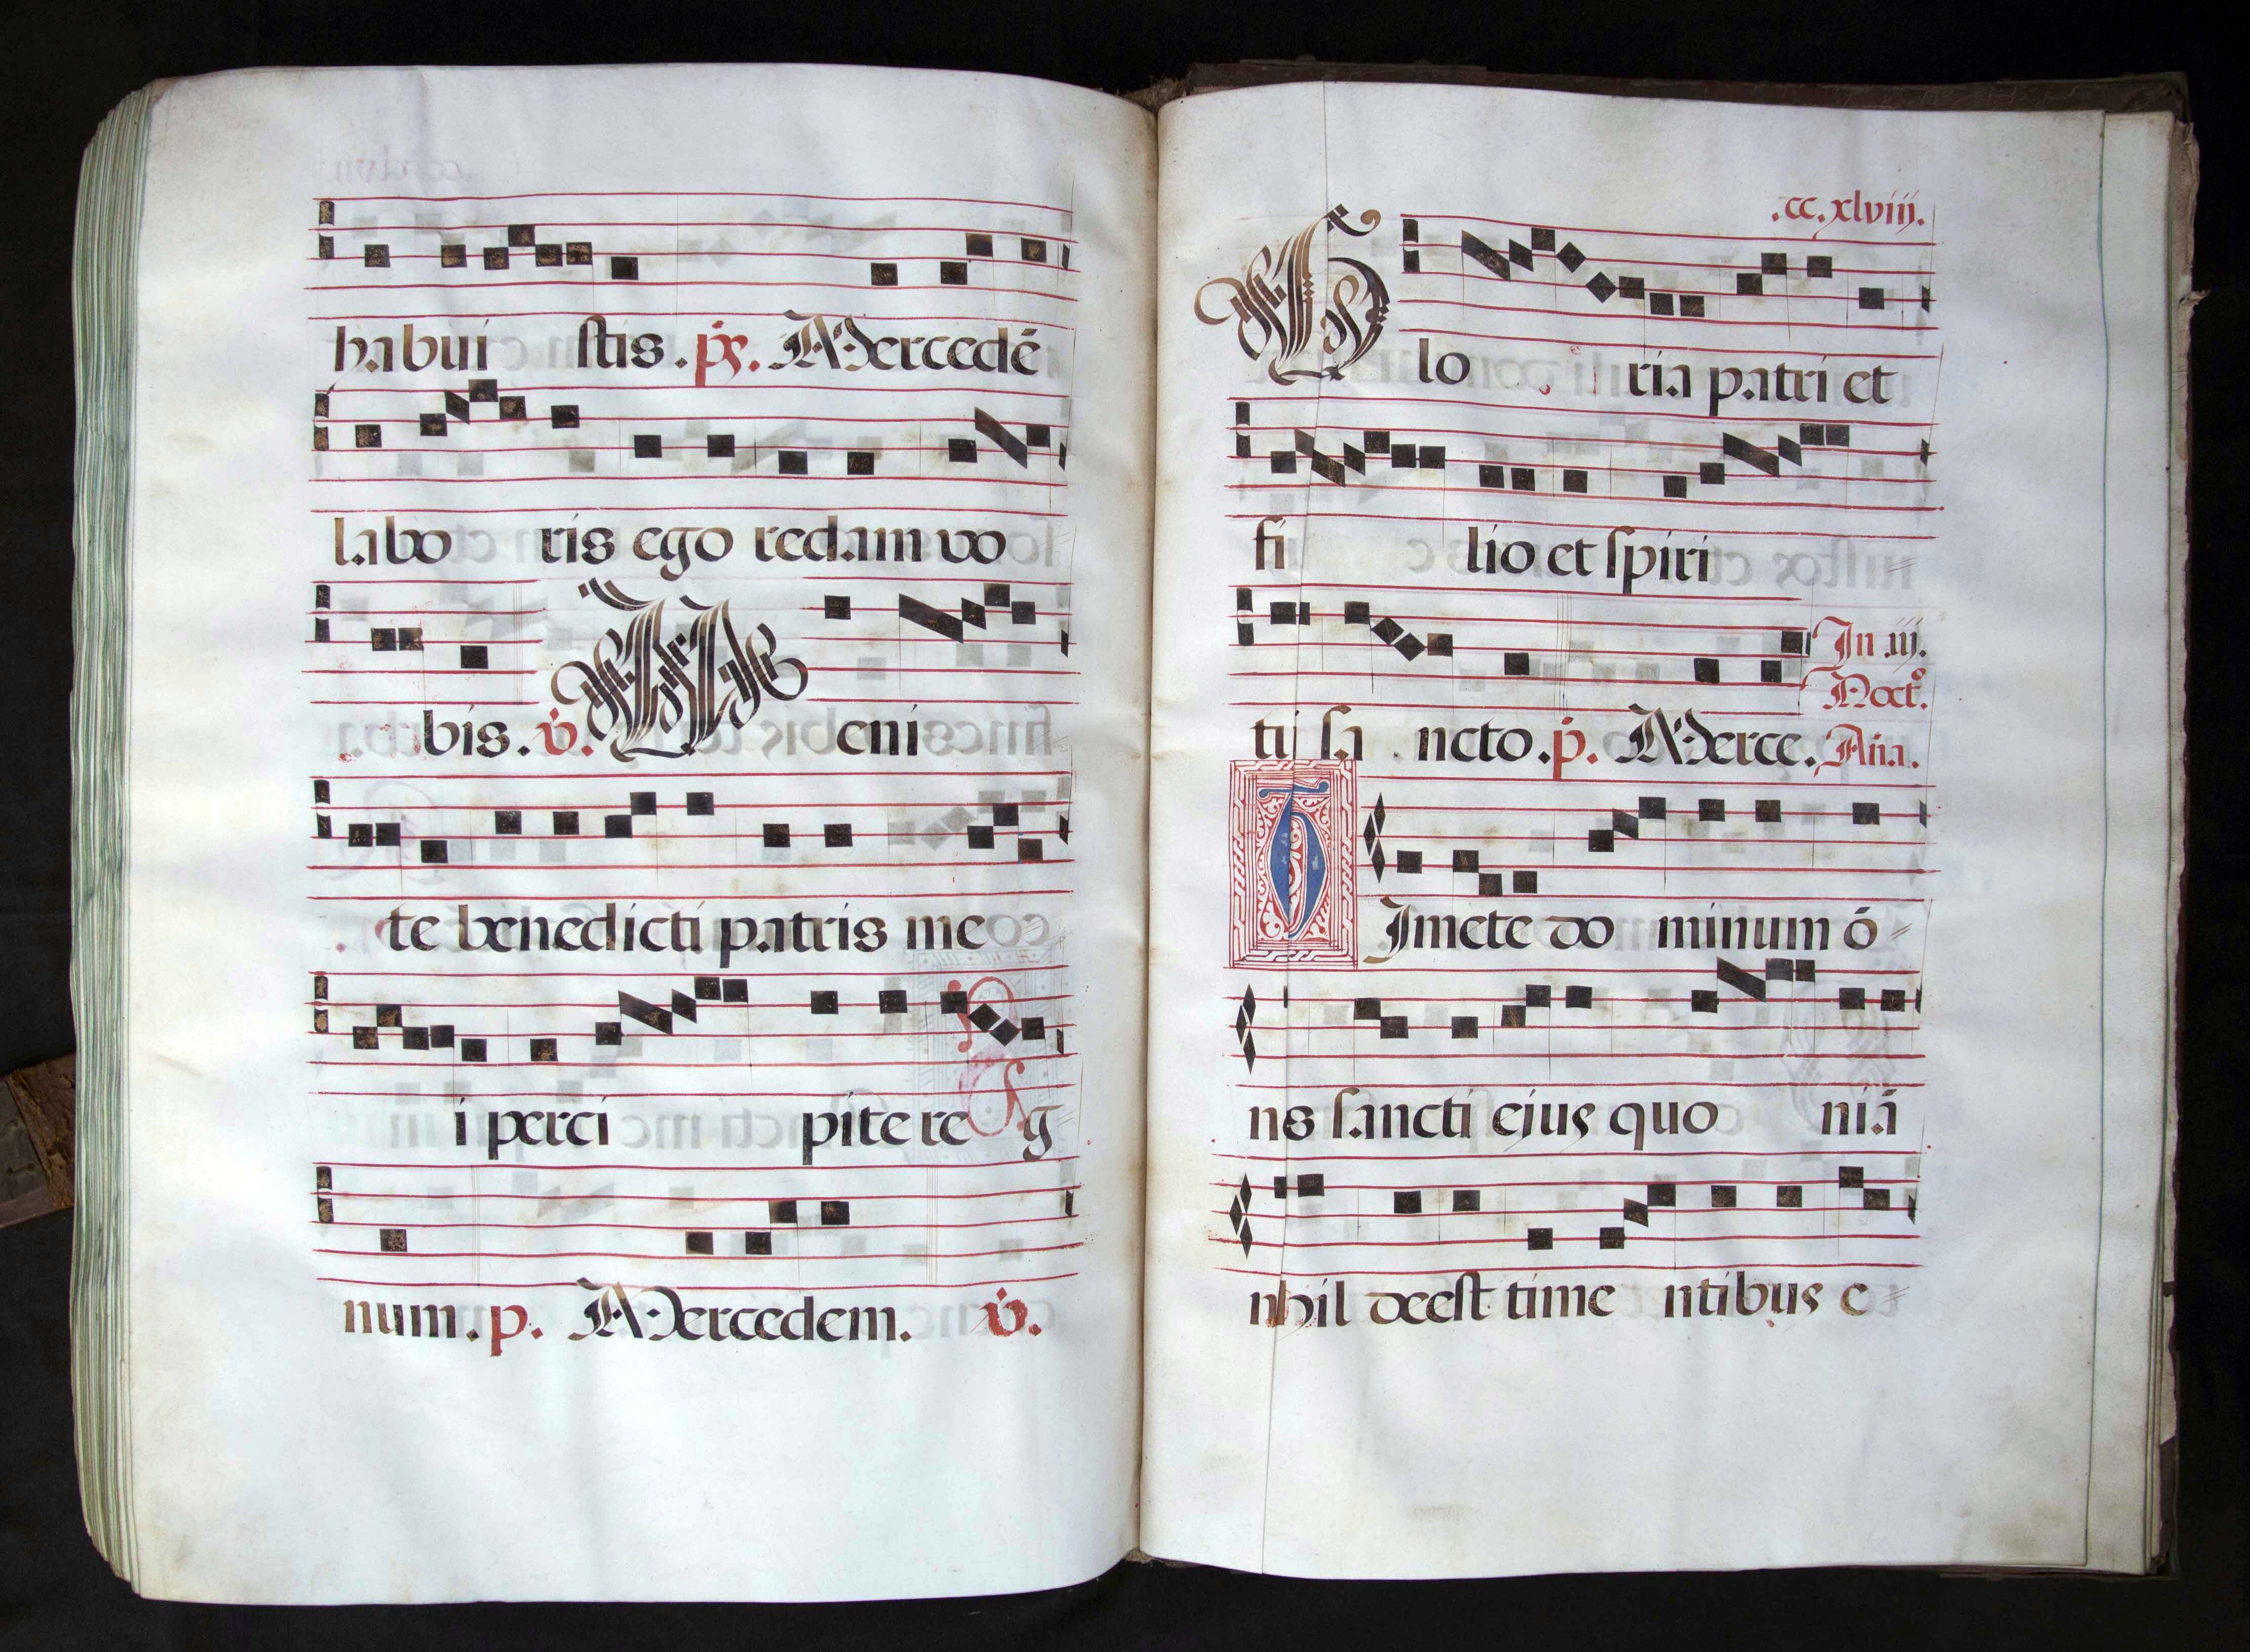 habui stis. ps. Mercedē
labo ris ego redam vo
bis. v. Veni
te benedicti patris me
i perci pite re g
num. p. Mercedem. v.
.cc. xlviij.
Glo ria patri et
fi lio et spiri
In .iij.
Noct.
tui sa ncto. p. Merce. Aña.
Timete do minum ō
ns sancti ejus quo niā
nhil deest time ntibus e